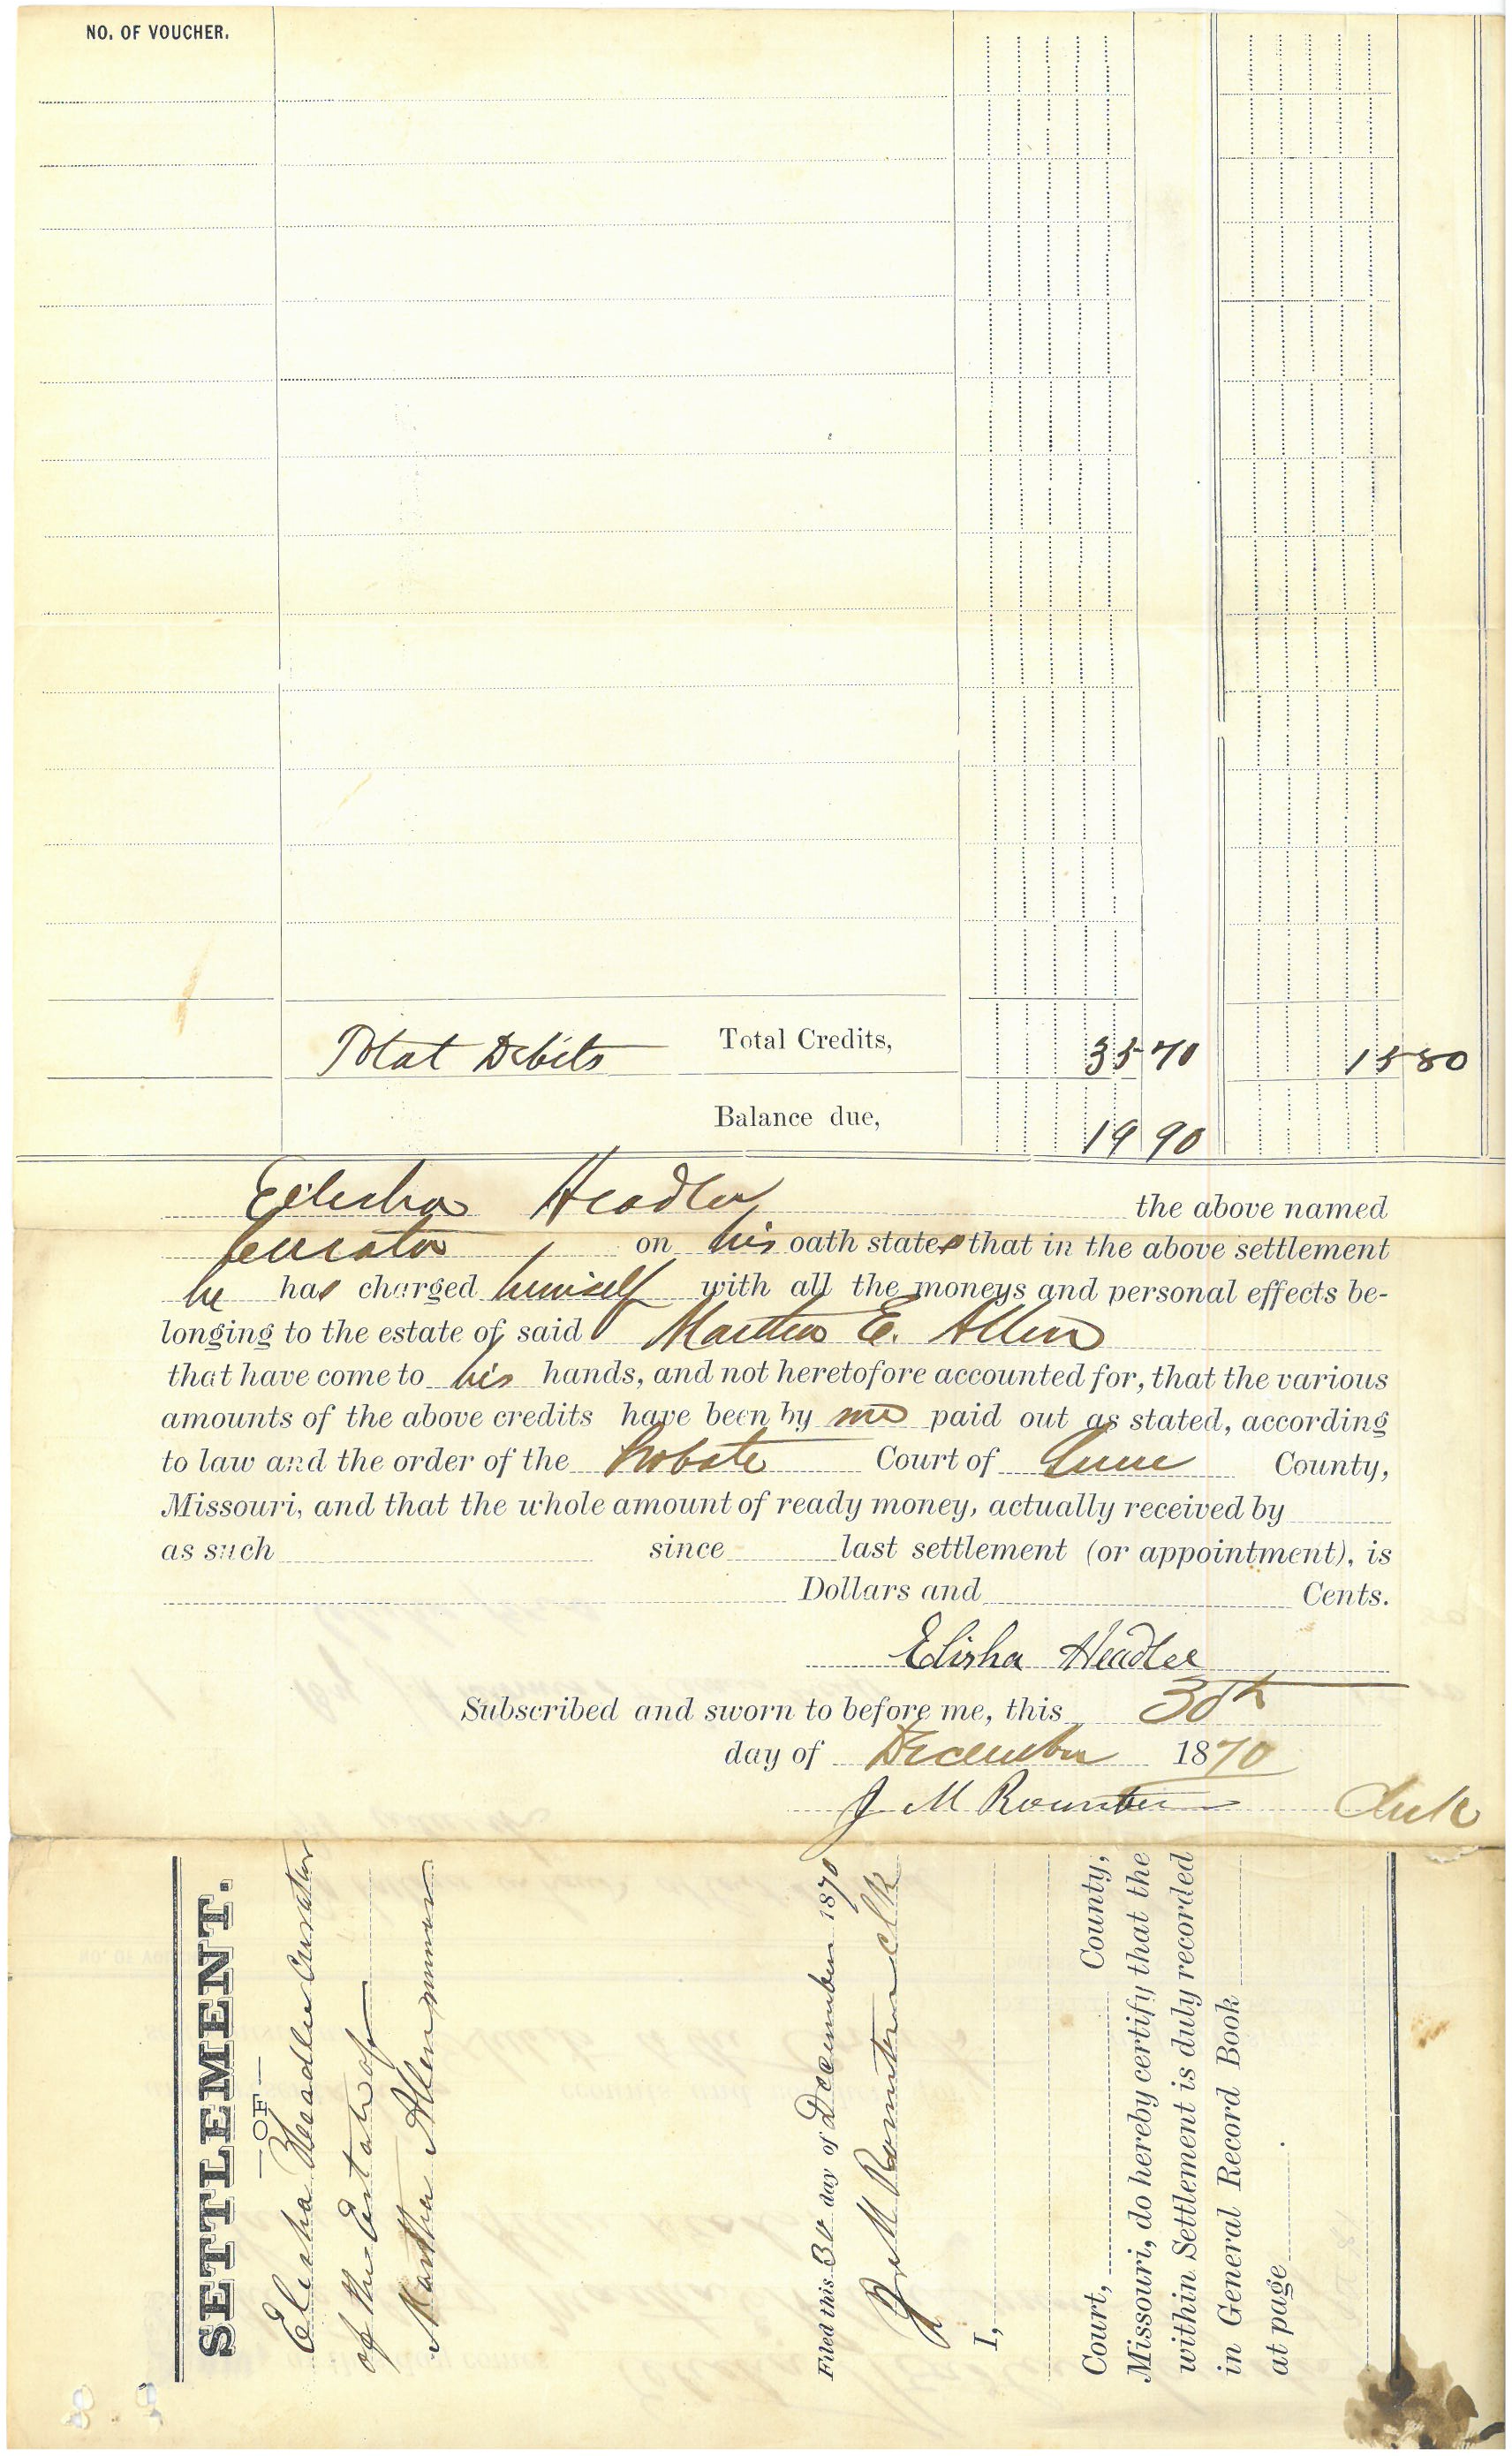 NO. OF VOUCHER.
Total Debits Total Credits, 35 70 15 80
Balance due, 19 90
Elisha Headlee the above named
Curator on his oath states that in the above settlement
he has charged himself with all the moneys and personal effects be-
longing to the estate of said Martha E. Allen
that have come to his hands, and not heretofore accounted for, that the various
amounts of the above credits have been by me paid out as stated, according
to law and the order of the Probate Court of Greene County,
Missouri, and that the whole amount of ready money, actually received by
as such since last settlement (or appointment), is
Dollars and Cents.
Elisha Headlee
Subscribed and sworn to before me, this 30th
day of December 1870
J M Rountree Clerk
SETTLEMENT.
—OF—
Elisha Headlee Curator
of the Estate of
Martha Allen minor
Filed this 30 day of December 1870
J M Rountree Clk
I,
Court, County,
Missouri, do hereby certify that the
within Settlement is duly recorded
in General Record Book
at page .